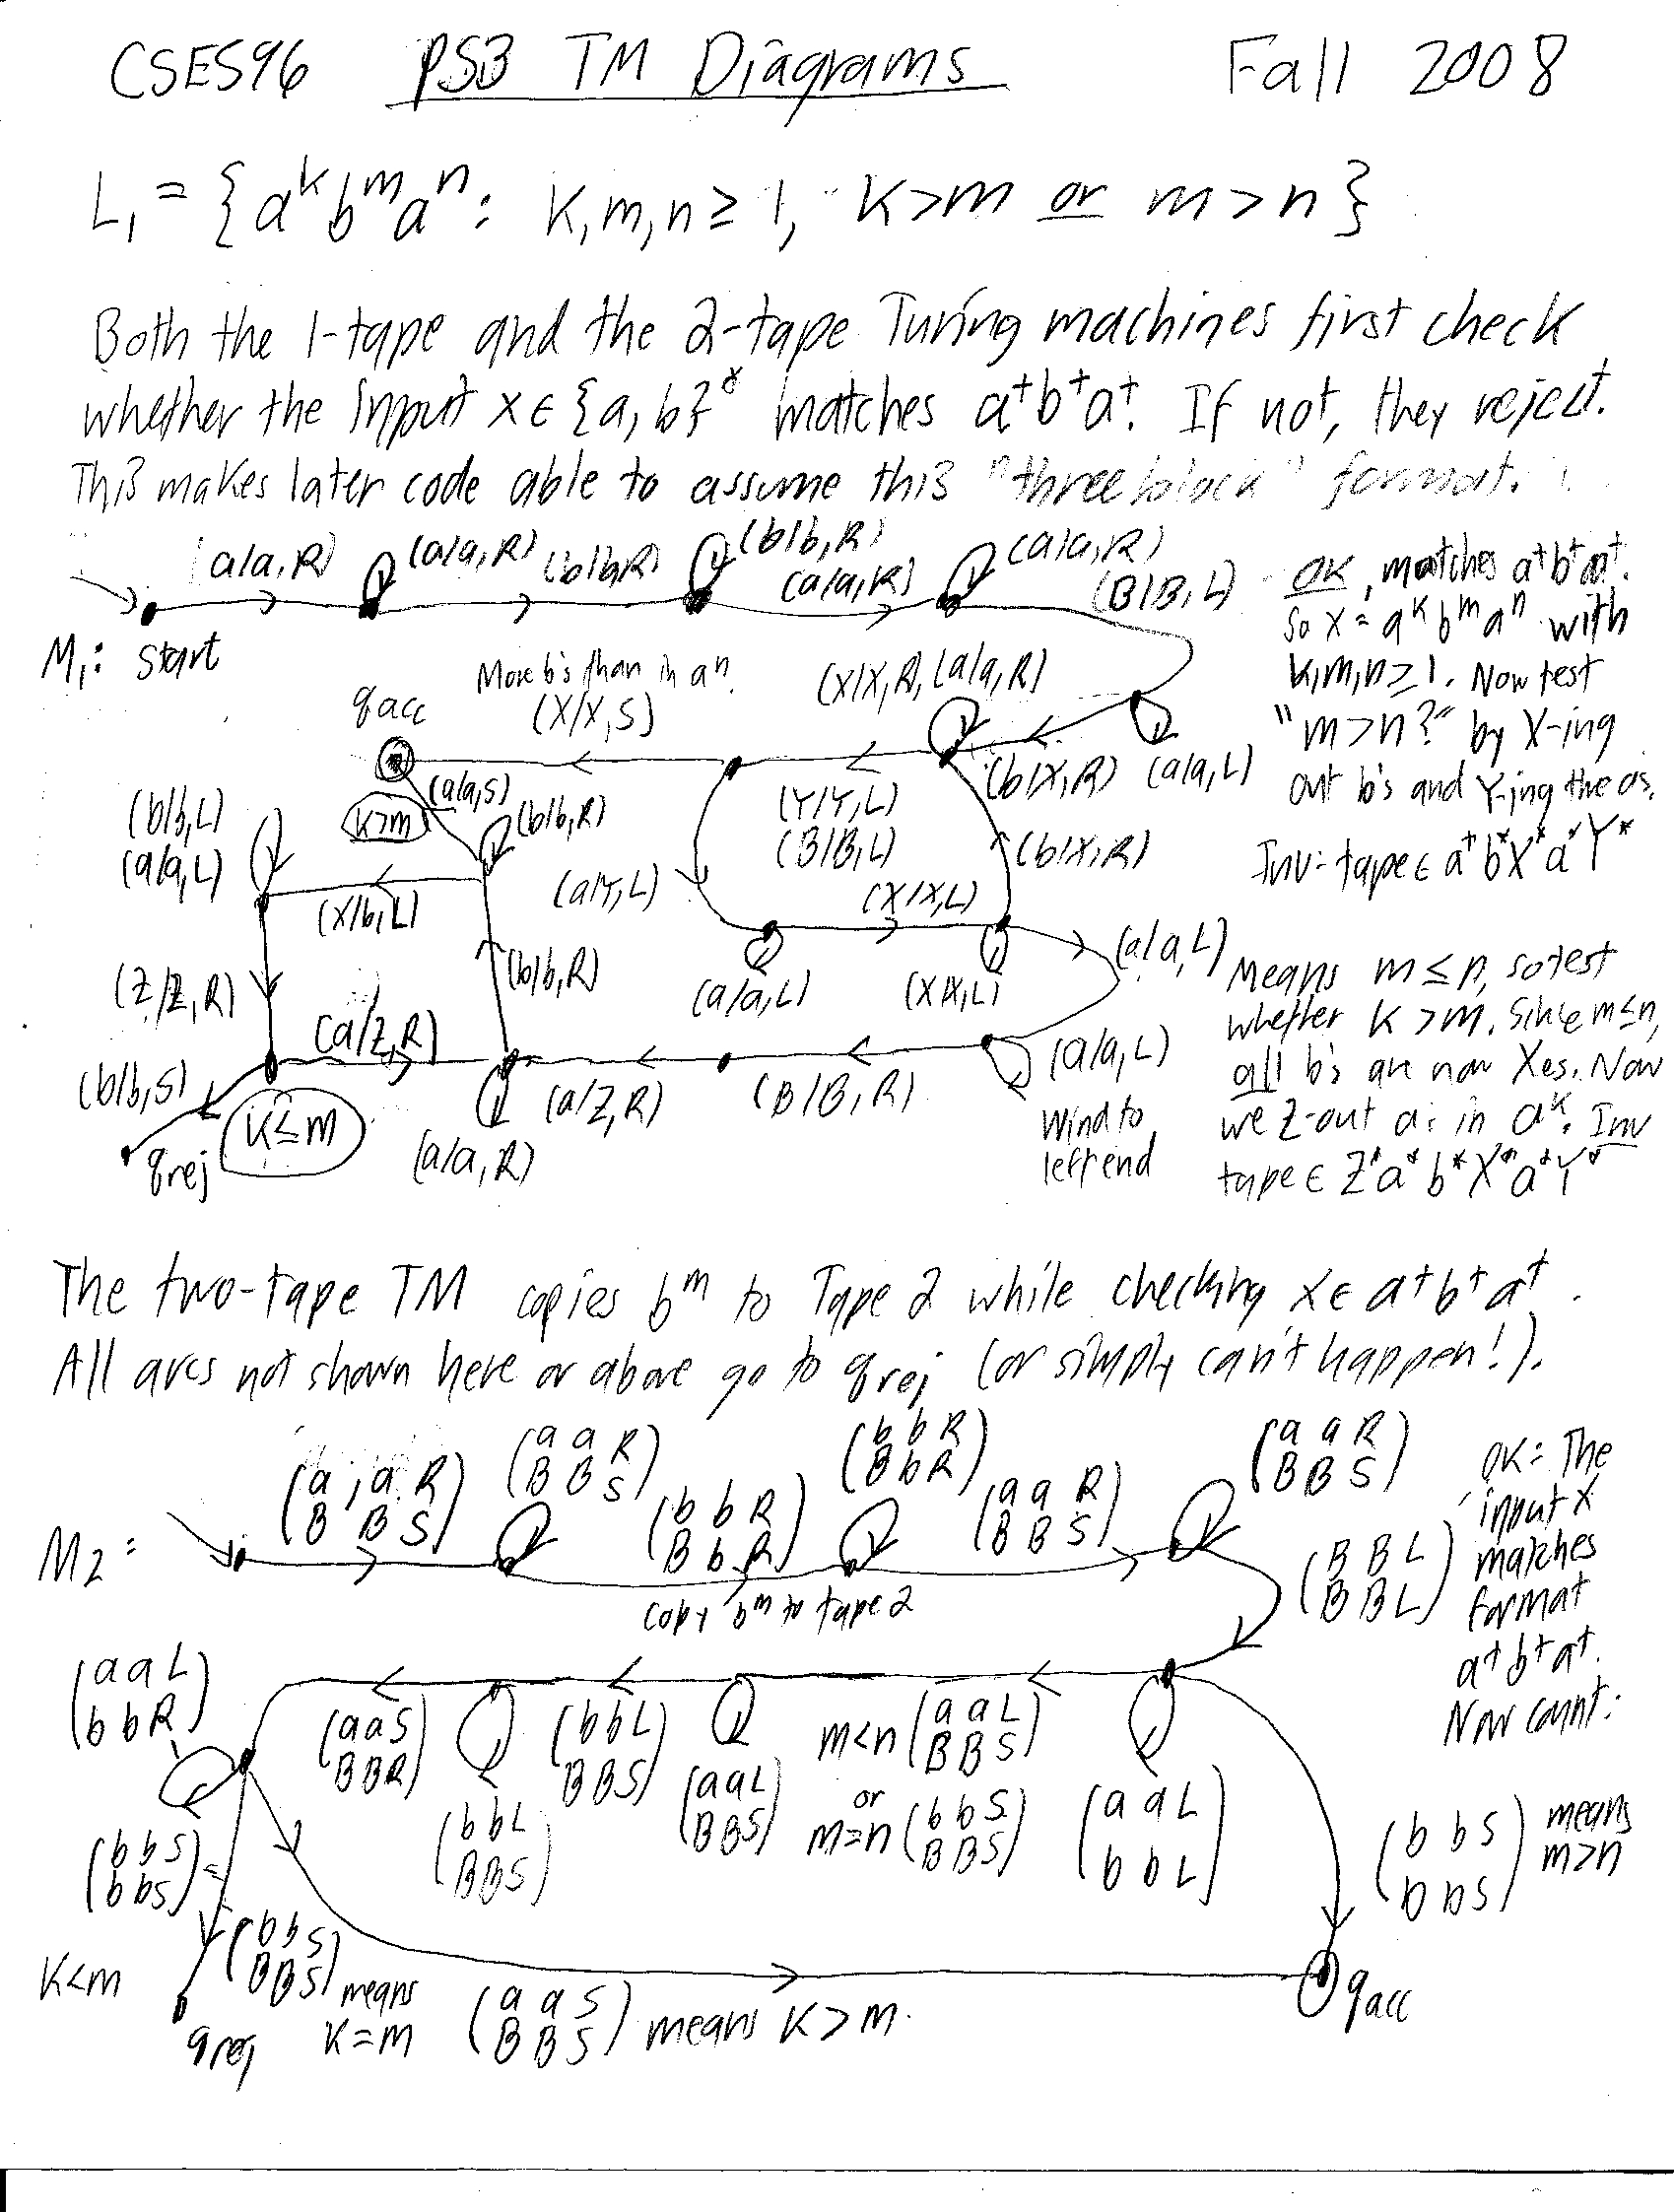 CSE596 PS3 TM Diagrams Fall 2008
L₁ = {aᵏbᵐaⁿ: k,m,n ≥ 1, k>m or m>n}
Both the 1-tape and the 2-tape Turing machines first check
whether the input x ∈ {a,b}* matches a⁺b⁺a⁺. If not, they reject.
This makes later code able to assume this "three block" format.
(a/a,R) (a/a,R) (b/b,R) (b/b,R) (a/a,R) (a/a,R) (B/B,L)
OK, matches a⁺b⁺a⁺.
So x = aᵏbᵐaⁿ with
k,m,n ≥ 1. Now test
"m>n?" by X-ing
out b's and Y-ing the as.
Inv: tape ∈ a⁺b*X*a*Y*
M₁: start
More b's than in aⁿ.
qacc (X/X,S) (X/X,R), (a/a,R)
(a/a,S) (b/X,R) (a/a,L)
k>m (b/b,R) (Y/Y,L)
(B/B,L)
(b/b,L)
(a/a,L)
(X/b,L) (a/Y,L) (X/X,L) (b/X,R)
(Z/Z,R) (b/b,R) (a/a,L) (X/X,L) (a/a,L)
(a/Z,R)
(b/b,S) k≤m (a/Z,R) (B/B,R) (a/a,L)
qrej (a/a,R)
Wind to
left end
Means m ≤ n, so test
whether k > m. Since m≤n,
all b's are now Xes. Now
we Z-out a's in aᵏ. Inv
tape ∈ Z*a*b*X*a*Y*
The two-tape TM copies bᵐ to Tape 2 while checking x ∈ a⁺b⁺a⁺.
All arcs not shown here or above go to qrej (or simply can't happen!).
M2:
(a, a R / B B S) (a a R / B B S) (b b R / B b R) (b b R / B b R) (a a R / B B S) (a a R / B B S)
copy bᵐ to tape 2
(B B L / B B L)
OK: The
input x
matches
format
a⁺b⁺a⁺.
Now count:
(a a L / b b R) (a a S / B B R) (b b L / B B S) (b b L / B B S) (a a L / B B S)
m<n (a a L / B B S)
or
m=n (b b S / B B S)
(a a L / b b L)
(b b S / b b S) means
m>n
(b b S / b b S)
k<m
qrej
(b b S / B B S) means
k=m
(a a S / B B S) means k > m.
qacc